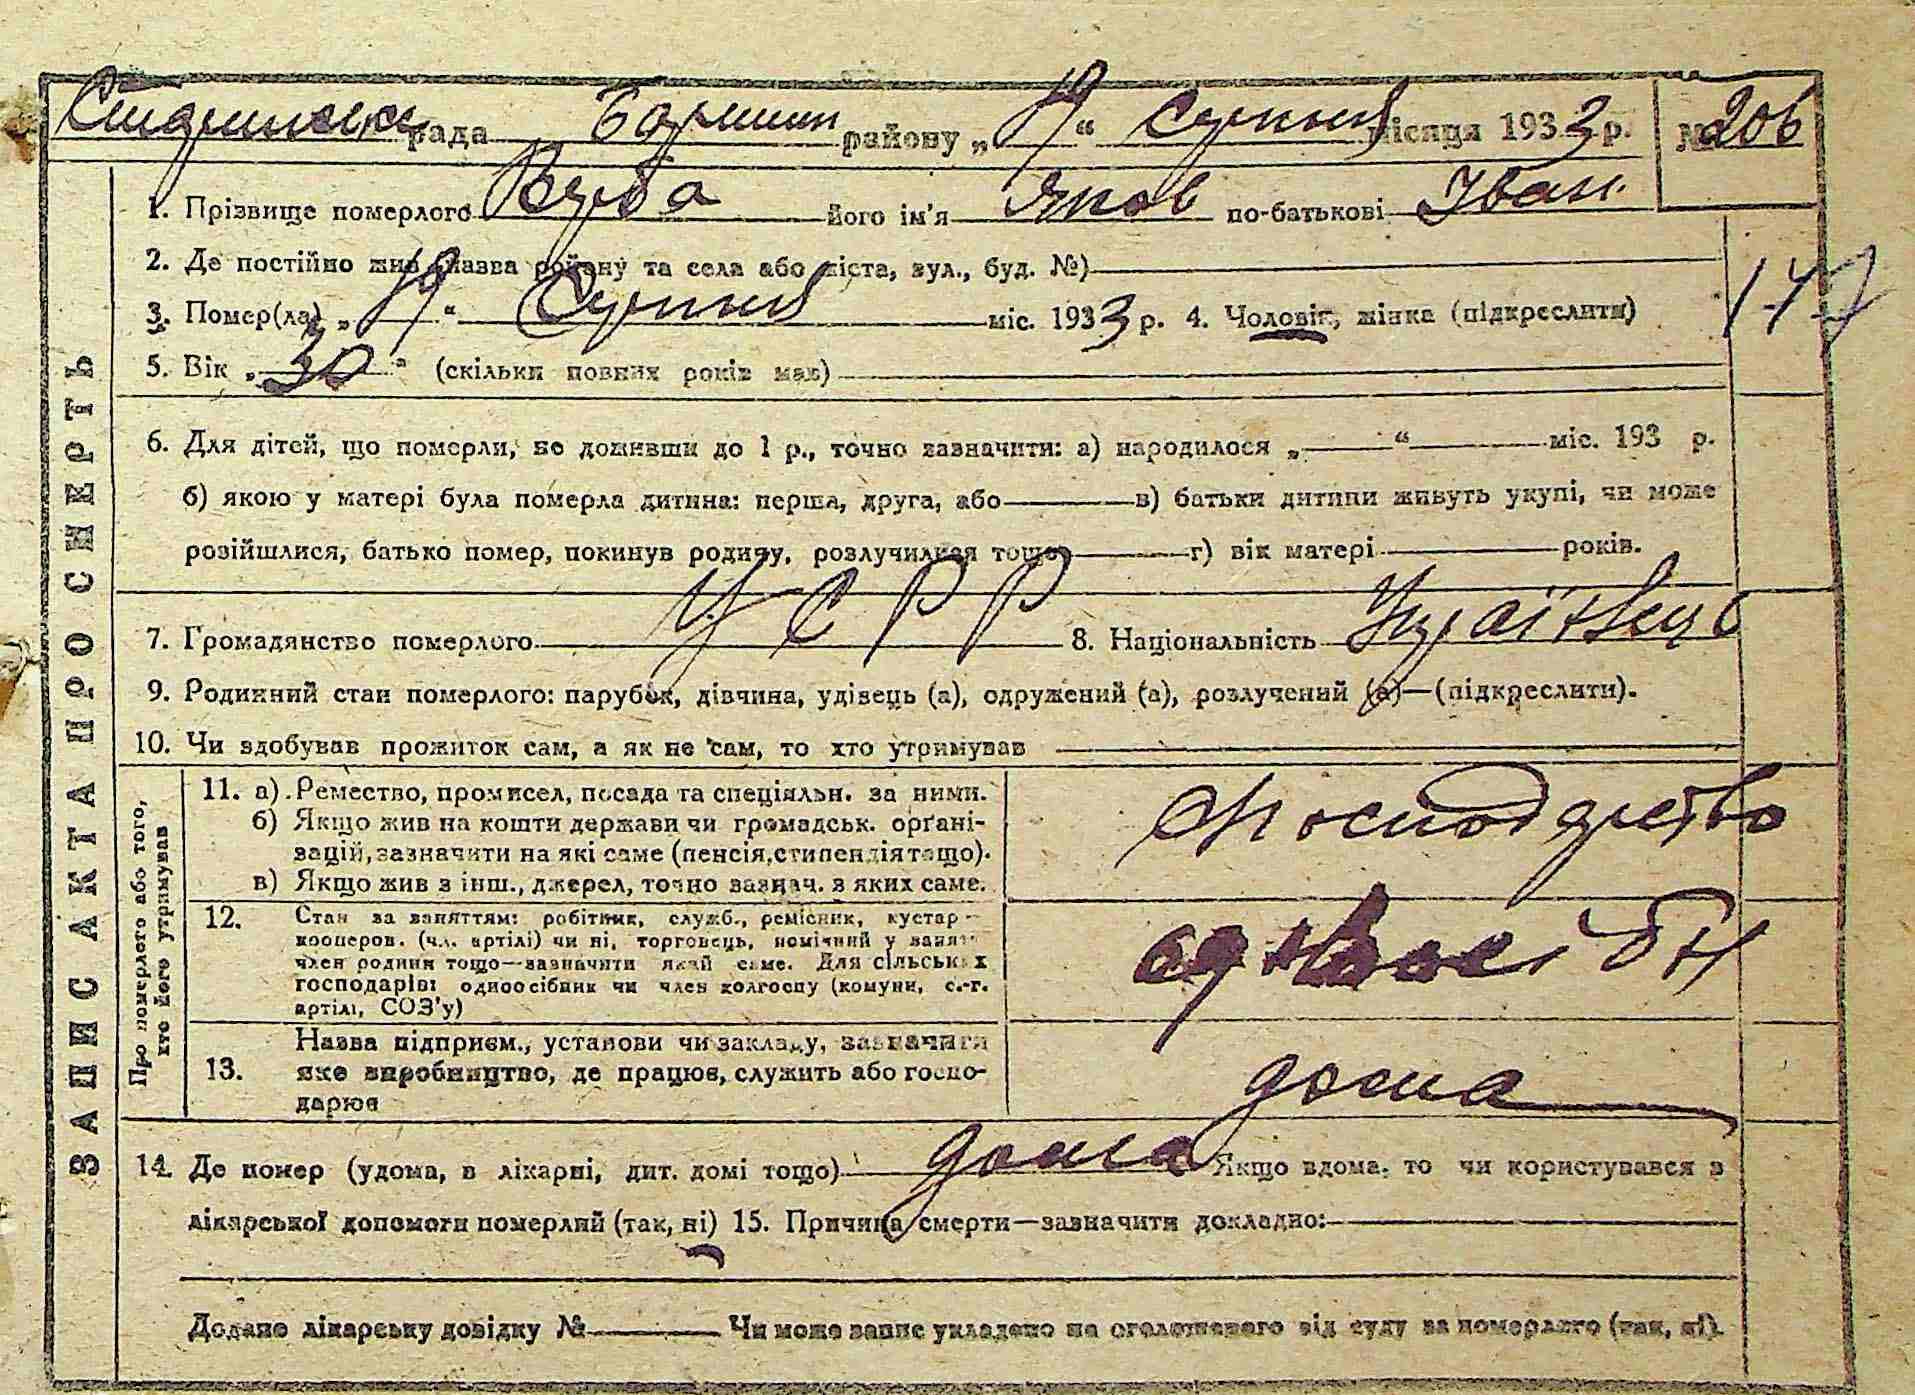 рада Баришп району „19“ Серпня місяця 1933 р. № 206
1. Прізвище померлого його ім'я Яков по-батькові Іван
2. Де постійно жив (назва району та села або міста, вул., буд. №)
3. Помер(ла) „19“ Серпня міс. 1933 р. 4. Чоловік, жінка (підкреслити)
5. Вік „30“ (скільки повних років мав)
6. Для дітей, що померли, не доживши до 1 р., точно зазначити: а) народилося „ “ міс. 193 р.
б) якою у матері була померла дитина: перша, друга, або в) батьки дитини живуть укупі, чи може
розійшлися, батько помер, покинув родину, розлучилися тощо г) вік матері років.
7. Громадянство померлого УСРР 8. Національність Українець
9. Родинний стан померлого: парубок, дівчина, удівець (а), одружений (а), розлучений (а)—(підкреслити).
10. Чи здобував прожиток сам, а як не сам, то хто утримував
ЗАПИС АКТА ПРО СМЕРТЬ
Про померлого або того, хто його утримував
11. а) Ремество, промисел, посада та спеціяльн. за ними.
б) Якщо жив на кошти держави чи громадськ. орґані-
зацій, зазначити на які саме (пенсія, стипендія тощо).
в) Якщо жив з інш., джерел, точно зазнач. з яких саме.
господарство
12. Стан за заняттям: робітник, служб., ремісник, кустар
кооперов. (чл. артілі) чи ні, торговець, помічний у занят.
член родини тощо—зазначити який саме. Для сільських
господарів: одноосібник чи член колгоспу (комуни, с.-г.
артілі, СОЗ'у)
13. Назва підприєм., установи чи закладу, зазначити
яке виробництво, де працює, служить або госпо-
дарює
дома
14. Де помер (удома, в лікарні, дит. домі тощо) дома Якщо вдома, то чи користувався з
лікарської допомоги померлий (так, ні) 15. Причина смерти—зазначити докладно:
Додано лікарську довідку № Чи може запис укладено на оголошеного від суду за померлого (так, ні).